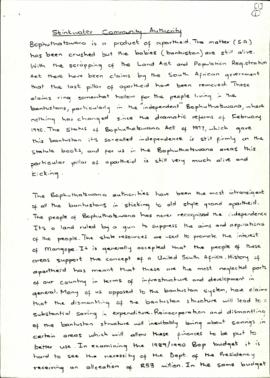 Stinkwater Community Authority
Bophuthatswana is a product of apartheid. The matter (SA)
has been crushed but the babies (bantustan) are still alive.
With the scrapping of the Land Act and Population Registration
Act there have been claims by the South African government
that the last pillar of apartheid have been removed. These
claims ring somewhat hollow for the people living in the
bantustans, particularly in the independent Bophuthatswana, where
nothing has changed since the dramatic reforms of February
1990. The Status of Bophuthatswana Act of 1977, which gave
this bantustan its so-called independence is still firmly on the
statute books, and for us in the Bophuthatswana areas this
particular pillar of apartheid is still very much alive and
kicking.
The Bophuthatswana authorities have been the most intransigent
of all the bantustans in sticking to old style grand apartheid.
The people of Bophuthatswana has never recognised the independence
It's a land ruled by a gun to suppress the aims and aspirations
of the people. The state resources are used to promote the interest
of Mangope. It is generally accepted that the people of these
areas support the concept of a United South Africa. History of
apartheid has meant that these are the most neglected parts
of our country in terms of infrastructure and development in
general. Many of us opposed to the bantustan system, have claims
that the dismantling of the bantustan structure will lead to a
substantial saving in expenditure. Reincorporation and dismantling
of the bantustan structure will inevitably bring about savings in
certain areas which will allow these finances to be put to
better use. In examining the 1989/1990 Bop budget it is
hard to see the necessity of the Dept of the Presidency
receiving an allocation of R53 million. In the same budget